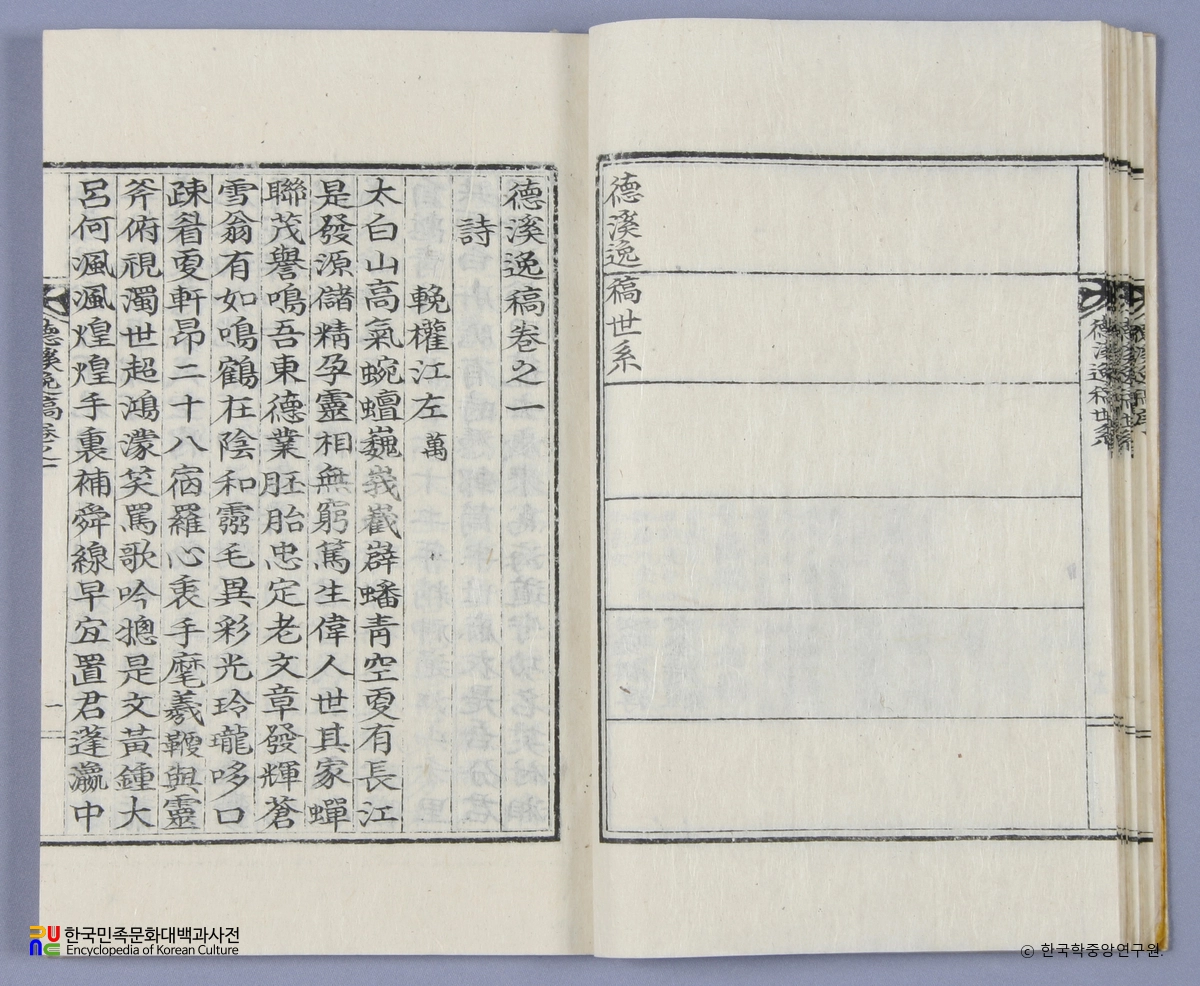 德溪逸稿世系
德溪逸稿世系
德溪逸稿卷之一
詩
輓權江左 萬
太白山高氣蜿蟺巍峩嶻嶭蟠靑空更有長江
是發源儲精孕靈相無窮篤生偉人世其家蟬
聯茂譽鳴吾東德業胚胎忠定老文章發輝蒼
雪翁有如鳴鶴在陰和翯毛異彩光玲瓏哆口
疎眉更軒昂二十八宿羅心裏手麾羲鞭與靈
斧俯視濁世超鴻濛笑罵歌吟摠是文黃鍾大
呂何渢渢煌煌手裏補舜線早宜置君蓬瀛中
德溪逸稿卷之一
一
한국민족문화대백과사전
Encyclopedia of Korean Culture
© 한국학중앙연구원.